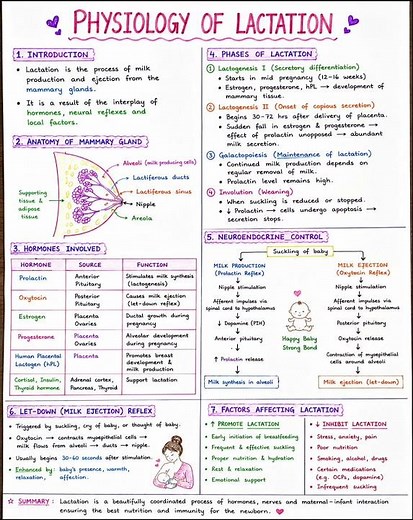 PHYSIOLOGY OF LACTATION
1. INTRODUCTION
• Lactation is the process of milk
production and ejection from the
mammary glands.
• It is a result of the interplay of
hormones, neural reflexes and
local factors.
2. ANATOMY OF MAMMARY GLAND
Alveoli (milk producing cells)
Lactiferous ducts
Lactiferous sinus
Nipple
Areola
Supporting
tissue &
adipose
tissue
3. HORMONES INVOLVED
HORMONE SOURCE FUNCTION
Prolactin Anterior Pituitary Stimulates milk synthesis (lactogenesis)
Oxytocin Posterior Pituitary Causes milk ejection (let-down reflex)
Estrogen Placenta Ovaries Ductal growth during pregnancy
Progesterone Placenta Ovaries Alveolar development during pregnancy
Human Placental Lactogen (hPL) Placenta Promotes breast development & milk production
Cortisol, Insulin, Thyroid hormone Adrenal cortex, Pancreas, Thyroid Support lactation
4. PHASES OF LACTATION
1 Lactogenesis I (Secretory differentiation)
• Starts in mid pregnancy (12-16 weeks)
• Estrogen, progesterone, hPL → development of
mammary tissue.
2 Lactogenesis II (Onset of copious secretion)
• Begins 30-72 hrs after delivery of placenta.
• Sudden fall in estrogen & progesterone →
effect of prolactin unopposed → abundant
milk secretion.
3 Galactopoiesis (Maintenance of lactation)
• Continued milk production depends on
regular removal of milk.
• Prolactin level remains high.
4 Involution (Weaning)
• When suckling is reduced or stopped.
• ↓ Prolactin → cells undergo apoptosis →
secretion stops.
5. NEUROENDOCRINE CONTROL
Suckling of baby
MILK PRODUCTION
(Prolactin Reflex)
Nipple stimulation
Afferent impulses via
spinal cord to hypothalamus
↓ Dopamine (PIH)
Anterior pituitary
↑ Prolactin release
Milk synthesis in alveoli
Happy Baby
Strong Bond
MILK EJECTION
(Oxytocin Reflex)
Nipple stimulation
Afferent impulses via
spinal cord to hypothalamus
Posterior pituitary
Oxytocin release
Contraction of myoepithelial
cells around alveoli
Milk ejection (let-down)
6. LET-DOWN (MILK EJECTION) REFLEX
• Triggered by suckling, cry of baby, or thought of baby.
• Oxytocin → contracts myoepithelial cells →
milk flows from alveoli → ducts → nipple.
• Usually begins 30-60 seconds after stimulation.
• Enhanced by: baby's presence, warmth,
relaxation, affection.
7. FACTORS AFFECTING LACTATION
↑ PROMOTE LACTATION
Early initiation of breastfeeding
Frequent & effective suckling
Proper nutrition & hydration
Rest & relaxation
Emotional support
↓ INHIBIT LACTATION
Stress, anxiety, pain
Poor nutrition
Smoking, alcohol, drugs
Certain medications
(e.g. OCPs, dopamine)
Infrequent suckling
☆ SUMMARY : Lactation is a beautifully coordinated process of hormones, nerves and maternal-infant interaction
ensuring the best nutrition and immunity for the newborn.